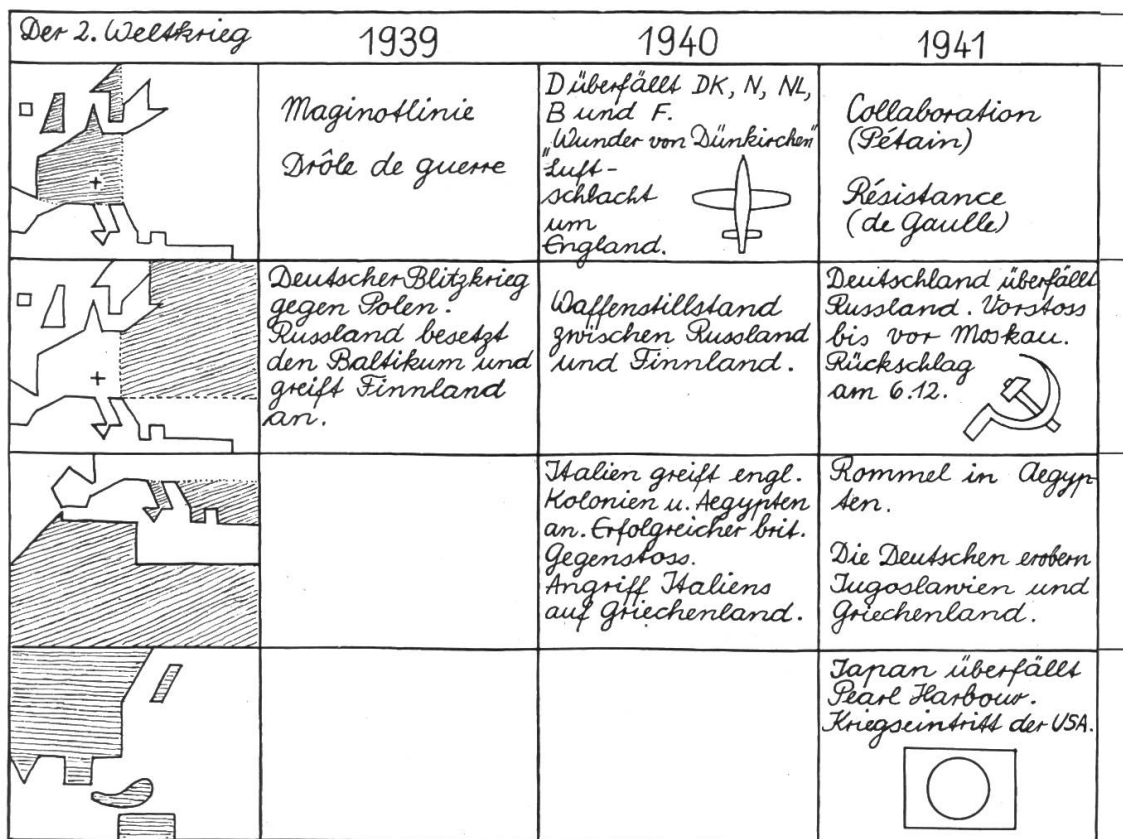 Der 2. Weltkrieg
1939
1940
1941
Maginotlinie
Drôle de guerre
D überfällt DK, N, NL,
B und F.
"Wunder von Dünkirchen"
Luft-
schlacht
um
England.
Collaboration
(Pétain)
Résistance
(de Gaulle)
Deutscher Blitzkrieg
gegen Polen.
Russland besetzt
den Baltikum und
greift Finnland
an.
Waffenstillstand
zwischen Russland
und Finnland.
Deutschland überfällt
Russland. Vorstoss
bis vor Moskau.
Rückschlag
am 6.12.
Italien greift engl.
Kolonien u. Aegypten
an. Erfolgreicher brit.
Gegenstoss.
Angriff Italiens
auf Griechenland.
Rommel in Aegyp-
ten.
Die Deutschen erobern
Jugoslawien und
Griechenland.
Japan überfällt
Pearl Harbour.
Kriegseintritt der USA.